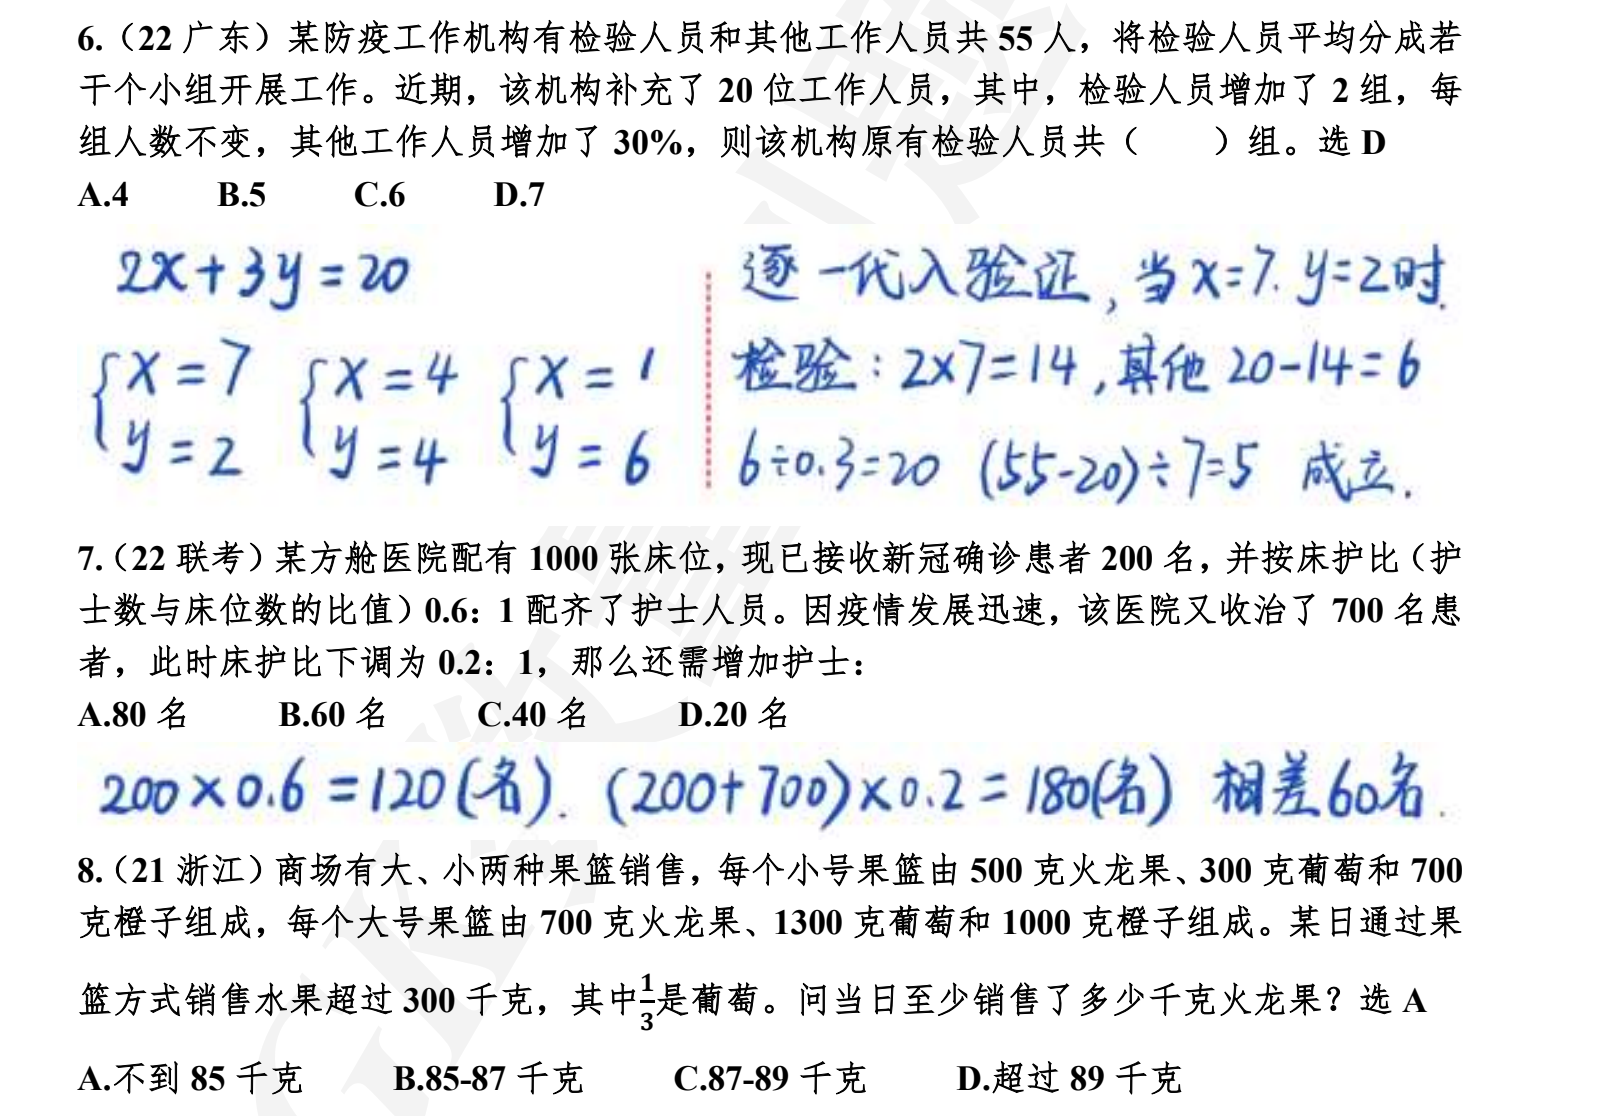 6.（22 广东）某防疫工作机构有检验人员和其他工作人员共 55 人，将检验人员平均分成若
干个小组开展工作。近期，该机构补充了 20 位工作人员，其中，检验人员增加了 2 组，每
组人数不变，其他工作人员增加了 30%，则该机构原有检验人员共（　　）组。选 D
A.4 B.5 C.6 D.7
2x+3y=20
{x=7 y=2 {x=4 y=4 {x=1 y=6
逐一代入验证，当x=7. y=2时.
检验：2×7=14，其他 20-14=6
6÷0.3=20 (55-20)÷7=5 成立.
7.（22 联考）某方舱医院配有 1000 张床位，现已接收新冠确诊患者 200 名，并按床护比（护
士数与床位数的比值）0.6：1 配齐了护士人员。因疫情发展迅速，该医院又收治了 700 名患
者，此时床护比下调为 0.2：1，那么还需增加护士：
A.80 名 B.60 名 C.40 名 D.20 名
200×0.6=120(名). (200+700)×0.2=180(名) 相差60名.
8.（21 浙江）商场有大、小两种果篮销售，每个小号果篮由 500 克火龙果、300 克葡萄和 700
克橙子组成，每个大号果篮由 700 克火龙果、1300 克葡萄和 1000 克橙子组成。某日通过果
篮方式销售水果超过 300 千克，其中1/3是葡萄。问当日至少销售了多少千克火龙果？选 A
A.不到 85 千克 B.85-87 千克 C.87-89 千克 D.超过 89 千克